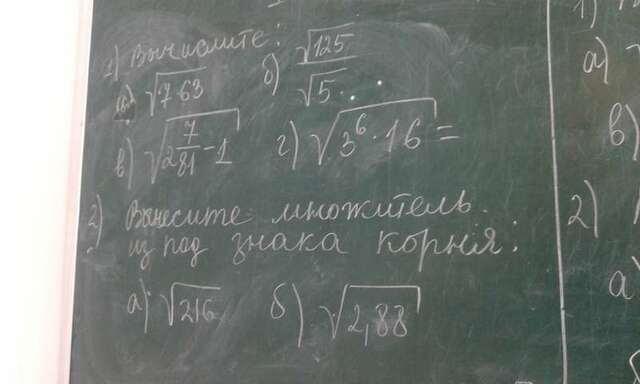 1) Вычислите:
а) √7·63 б) √125/√5
в) √2 7/81 - 1 г) √3⁶·16 =
2) Вынесите множитель
из под знака корня:
а) √216 б) √2,88
1)
а)
в)
2)
а)